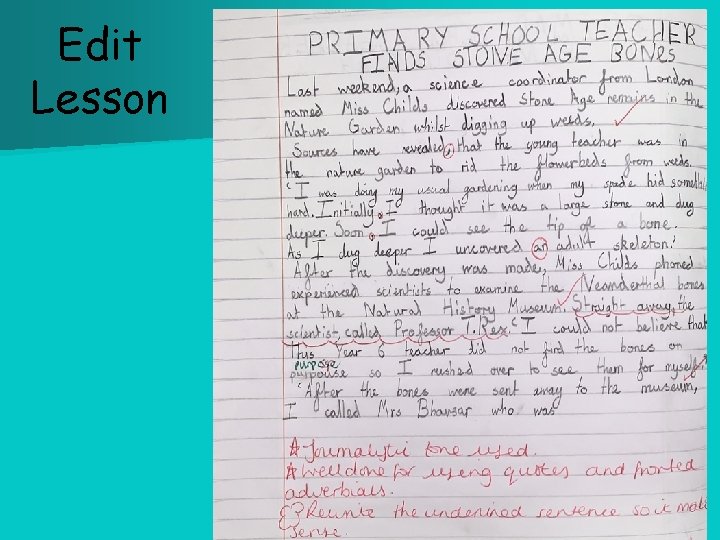 Edit
Lesson
PRIMARY SCHOOL TEACHER
FINDS STONE AGE BONES
Last weekend, a science coordinator from London
named Miss Childs discovered Stone Age remains in the
Nature Garden whilst digging up weeds.
Sources have revealed, that the young teacher was in
the nature garden to rid the flowerbeds from weeds.
"I was doing my usual gardening when my spade hid someth
hard. Initially, I thought it was a large stone and dug
deeper. Soon, I could see the tip of a bone.
As I dug deeper I uncovered an adult skeleton."
After the discovery was made, Miss Childs phoned
experienced scientists to examine the Neanderthal bones
at the Natural History Museum. Straight away, the
scientist, called Professor T. Rex. "I could not believe that
This Year 6 teacher did not find the bones on
purpose
purpouse so I rushed over to see them for myself."
"After the bones were sent away to the museum,
I called Mrs Bhavsar who was
Journalistic tone used.
Well done for using quotes and fronted
adverbials.
? Rewrite the underlined sentence so it make
sense.